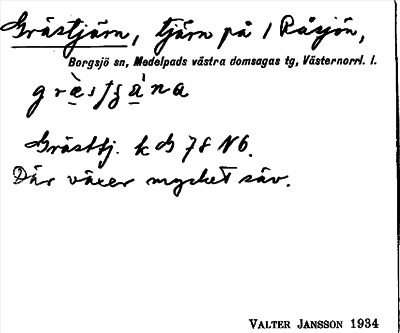 Grästjärn, tjärn på / Råsjön,
Borgsjö sn, Medelpads västra domsagas tg, Västernorrl. l.
Grästj. k G 78 N6.
Där växer mycket säv.
VALTER JANSSON 1934